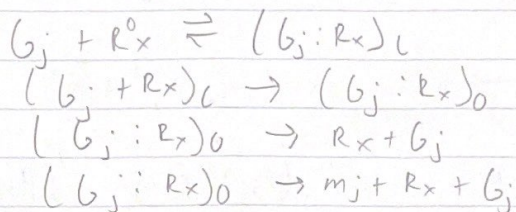 Gj + R⁰x ⇌ (Gj : Rx)c
(Gj + Rx)c → (Gj : Rx)o
(Gj : Rx)o → Rx + Gj
(Gj : Rx)o → mj + Rx + Gj